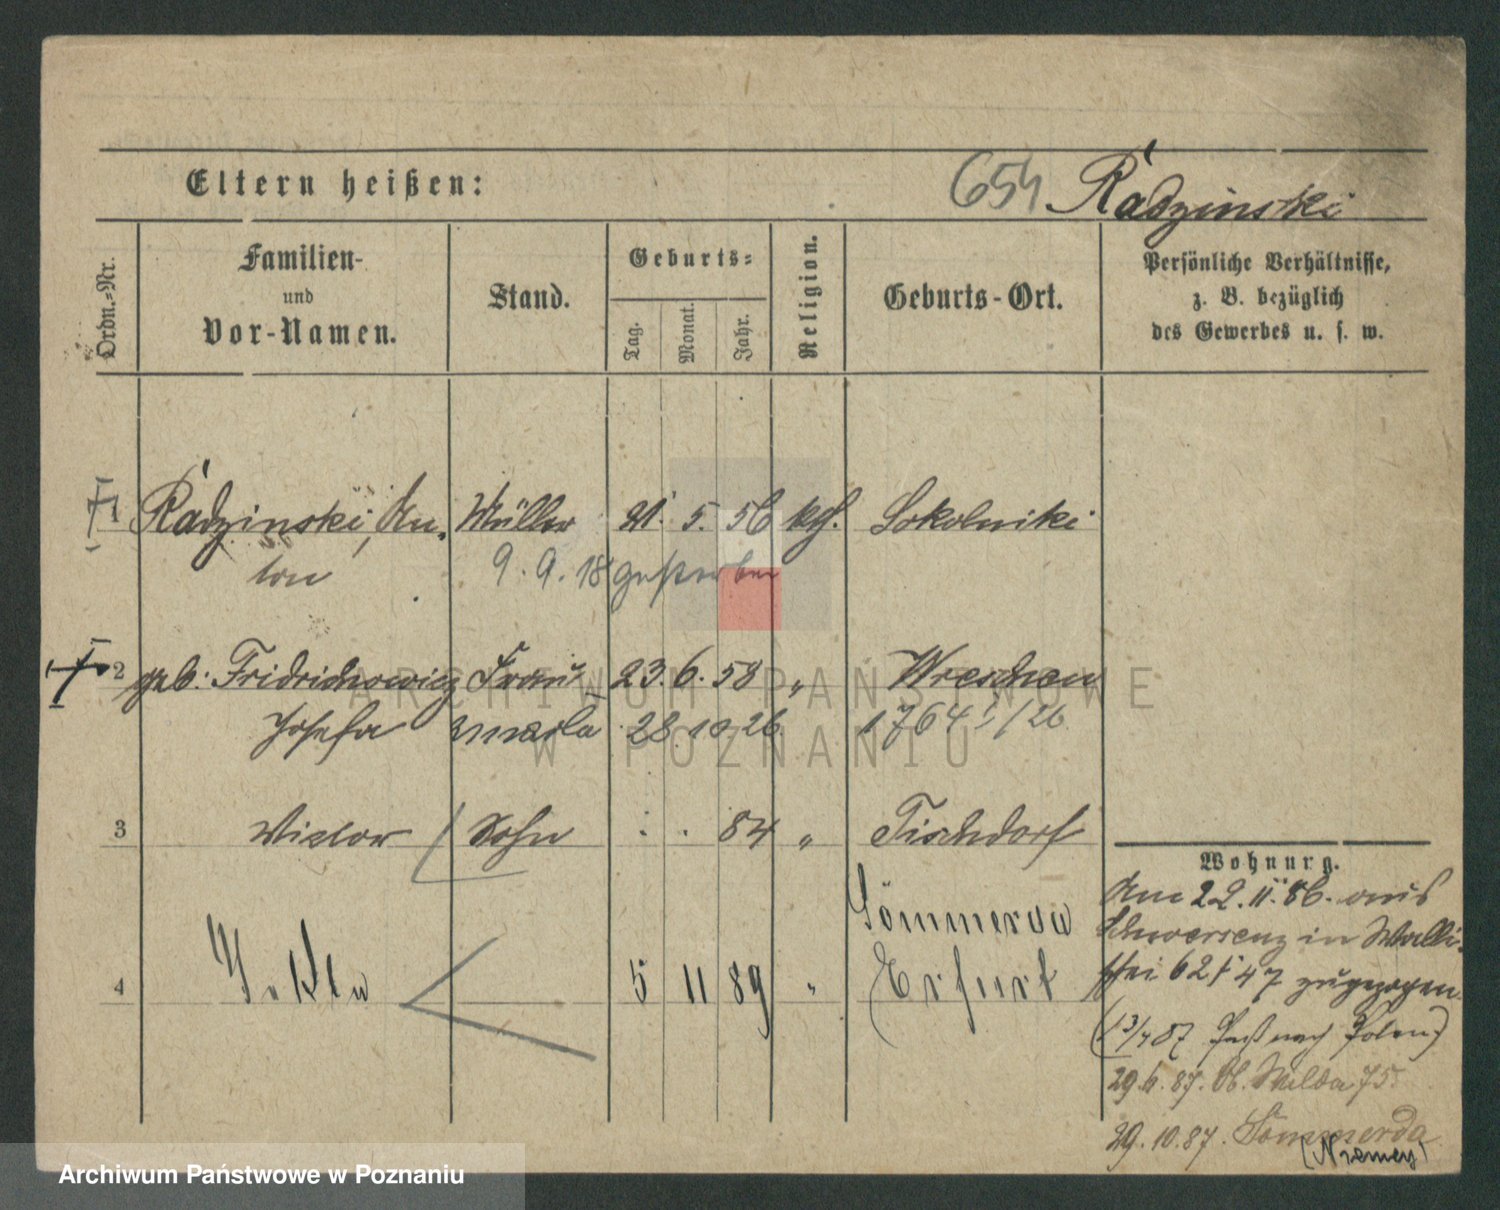 Eltern heißen: 654 Radzinski
Ordn.-Nr. Familien- und Vor-Namen. Stand. Geburts- Tag. Monat. Jahr. Religion. Geburts-Ort. Persönliche Verhältnisse, z. B. bezüglich des Gewerbes u. s. w.
1 Radzinski, An- Müller 21. 5. 56 kth. Sokolniki
ton 9. 9. 18 gestorben
2 geb: Fridrichowicz Frau 23. 6. 58 " Wreschen
Josefa zmarła 28. 10 26 1764 /26
3 Victor Sohn 84 " Tischdorf
Wohnung.
Am 22. 11. 86. aus
Schwersenz in Walli-
schei 62/ 47 zugezogen
Sömmerda
4 5 11 89 " Erfurt
(13/4 87 Paß nach Polen)
29.6.87. Ob. Wilda 75
29.10.87. Sömmerda
(Niemcy)
ARCHIWUM PAŃSTWOWE
W POZNANIU
Archiwum Państwowe w Poznaniu